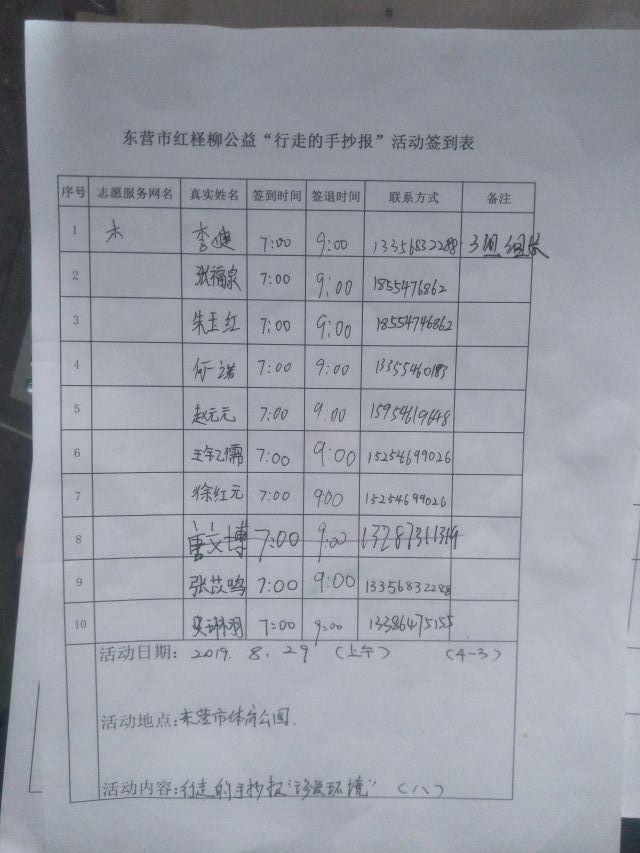 东营市红柽柳公益“行走的手抄报”活动签到表
序号 志愿服务网名 真实姓名 签到时间 签退时间 联系方式 备注
1 木 李婕 7:00 9:00 13356832288 3组 组长
2 张福泉 7:00 9:00 1855476862
3 朱玉红 7:00 9:00 18554746862
4 何一诺 7:00 9:00 13355460183
5 赵元元 7:00 9:00 15954619648
6 7:00 9:00 15254699026
7 徐红元 7:00 9:00 15254699026
8 唐文博 7:00 9:00 13287311319
9 张苡鸣 7:00 9:00 13356832288
10 7:00 9:00 13386475155
活动日期: 2019. 8. 29 (上午) (4-3)
活动地点: 东营市体育公园.
活动内容: 行走的手抄报“珍爱环境” (八)